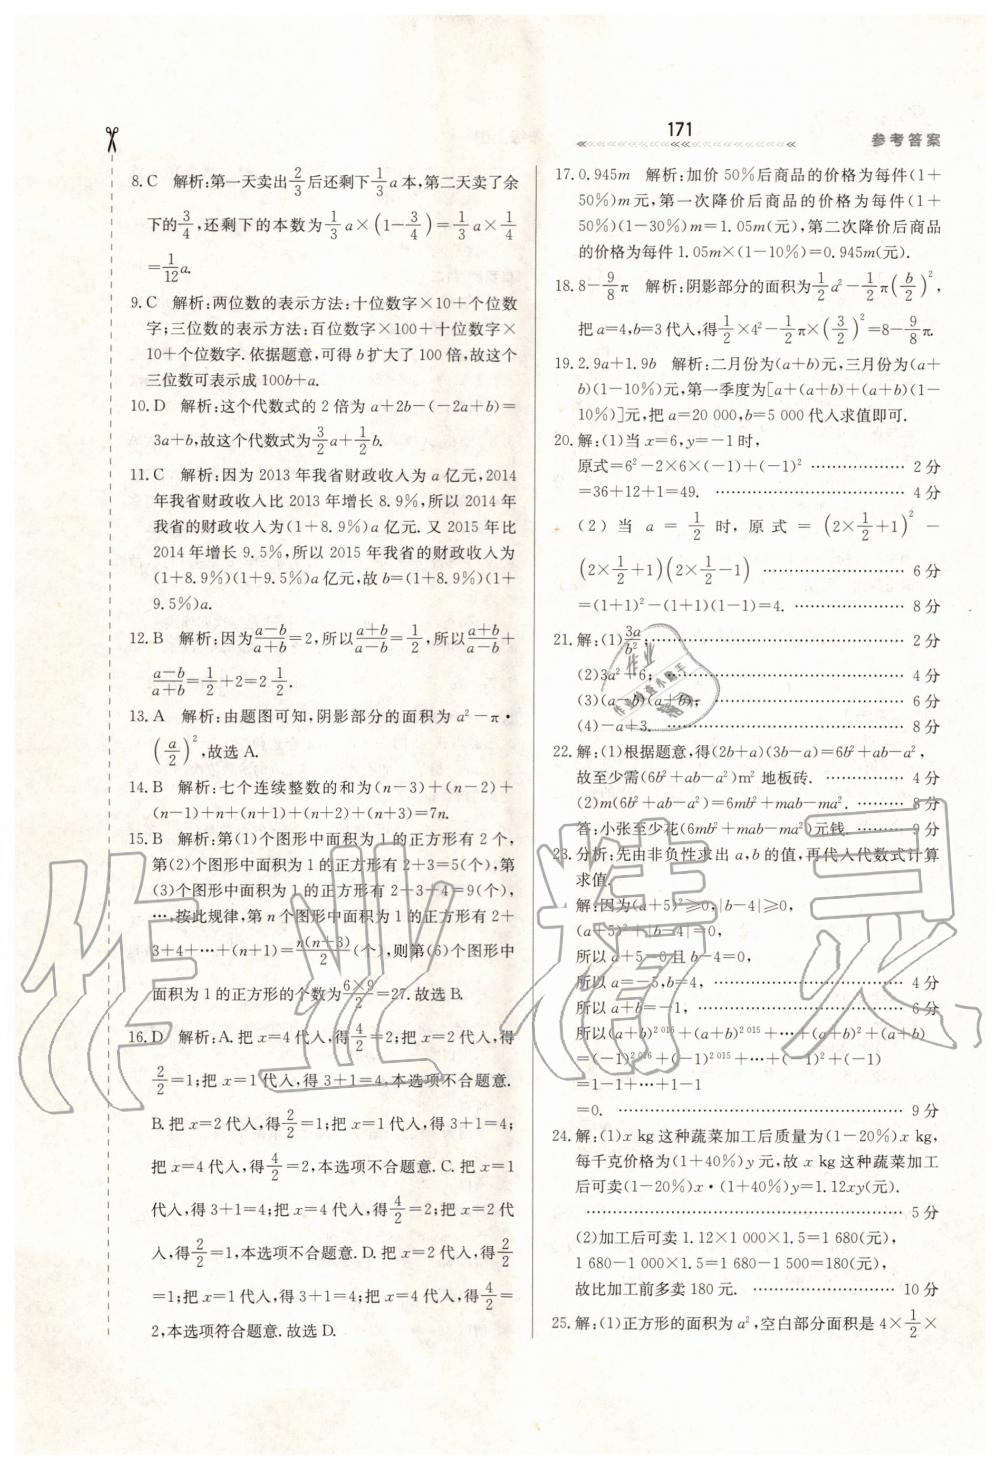 171
参考答案
8. C 解析:第一天卖出2/3后还剩下1/3a本,第二天卖了余
下的3/4,还剩下的本数为1/3a×(1-3/4)=1/3a×1/4
=1/12a.
9. C 解析:两位数的表示方法:十位数字×10+个位数
字;三位数的表示方法:百位数字×100+十位数字×
10+个位数字. 依据题意,可得b扩大了100倍,故这个
三位数可表示成100b+a.
10. D 解析:这个代数式的2倍为a+2b-(-2a+b)=
3a+b,故这个代数式为3/2a+1/2b.
11. C 解析:因为2013年我省财政收入为a亿元,2014
年我省财政收入比2013年增长8.9%,所以2014年
我省的财政收入为(1+8.9%)a亿元. 又2015年比
2014年增长9.5%,所以2015年我省的财政收入为
(1+8.9%)(1+9.5%)a亿元,故b=(1+8.9%)(1+
9.5%)a.
12. B 解析:因为(a-b)/(a+b)=2,所以(a+b)/(a-b)=1/2,所以(a+b)/(a-b)+
(a-b)/(a+b)=1/2+2=2 1/2.
13. A 解析:由题图可知,阴影部分的面积为a²-π·
(a/2)²,故选A.
14. B 解析:七个连续整数的和为(n-3)+(n-2)+
(n-1)+n+(n+1)+(n+2)+(n+3)=7n.
15. B 解析:第(1)个图形中面积为1的正方形有2个,
第(2)个图形中面积为1的正方形有2+3=5(个),第
(3)个图形中面积为1的正方形有2+3+4=9(个),
…,按此规律,第n个图形中面积为1的正方形有2+
3+4+…+(n+1)=n(n+3)/2(个),则第(6)个图形中
面积为1的正方形的个数为(6×9)/2=27. 故选B.
16. D 解析:A. 把x=4代入,得4/2=2;把x=2代入,得
2/2=1;把x=1代入,得3+1=4,本选项不合题意.
B. 把x=2代入,得2/2=1;把x=1代入,得3+1=4;
把x=4代入,得4/2=2,本选项不合题意. C. 把x=1
代入,得3+1=4;把x=4代入,得4/2=2;把x=2代
入,得2/2=1,本选项不合题意. D. 把x=2代入,得
2/2=1;把x=1代入,得3+1=4;把x=4代入,得4/2=
2,本选项符合题意. 故选D.
17. 0.945m 解析:加价50%后商品的价格为每件(1+
50%)m元,第一次降价后商品的价格为每件(1+
50%)(1-30%)m=1.05m(元),第二次降价后商品
的价格为每件1.05m×(1-10%)=0.945m(元).
18. 8-9/8π 解析:阴影部分的面积为1/2a²-1/2π(b/2)²,
把a=4,b=3代入,得1/2×4²-1/2π×(3/2)²=8-9/8π.
19. 2.9a+1.9b 解析:二月份为(a+b)元,三月份为(a+
b)(1-10%)元,第一季度为[a+(a+b)+(a+b)(1-
10%)]元,把a=20 000,b=5 000代入求值即可.
20. 解:(1)当x=6,y=-1时,
原式=6²-2×6×(-1)+(-1)² ………………… 2分
=36+12+1=49. ………………………………… 4分
(2)当a=1/2时,原式=(2×1/2+1)²-
(2×1/2+1)(2×1/2-1) ………………………… 6分
=(1+1)²-(1+1)(1-1)=4. …………………… 8分
21. 解:(1)3a/b²; ………………………………… 2分
(2)3a²+6; ………………………………… 4分
(3)(a-b)(a+b); ………………………… 6分
(4)-a+3. ………………………………… 8分
22. 解:(1)根据题意,得(2b+a)(3b-a)=6b²+ab-a²,
故至少需(6b²+ab-a²)m²地板砖. ……………… 4分
(2)m(6b²+ab-a²)=6mb²+mab-ma². ………… 8分
答:小张至少花(6mb²+mab-ma²)元钱. ……… 9分
23. 分析:先由非负性求出a,b的值,再代入代数式计算
求值.
解:因为(a+5)²≥0,|b-4|≥0,
(a+5)²+|b-4|=0,
所以a+5=0且b-4=0,
所以a=-5,b=4, ………………………………… 4分
所以a+b=-1, ………………………………… 6分
所以(a+b)²⁰¹⁶+(a+b)²⁰¹⁵+…+(a+b)²+(a+b)
=(-1)²⁰¹⁶+(-1)²⁰¹⁵+…+(-1)²+(-1)
=1-1+…+1-1
=0. ………………………………………… 9分
24. 解:(1)x kg这种蔬菜加工后质量为(1-20%)x kg,
每千克价格为(1+40%)y元,故x kg这种蔬菜加工
后可卖(1-20%)x·(1+40%)y=1.12xy(元).
………………………………………………… 5分
(2)加工后可卖1.12×1 000×1.5=1 680(元),
1 680-1 000×1.5=1 680-1 500=180(元),
故比加工前多卖180元. ……………………… 10分
25. 解:(1)正方形的面积为a²,空白部分面积是4×1/2×
作业精灵